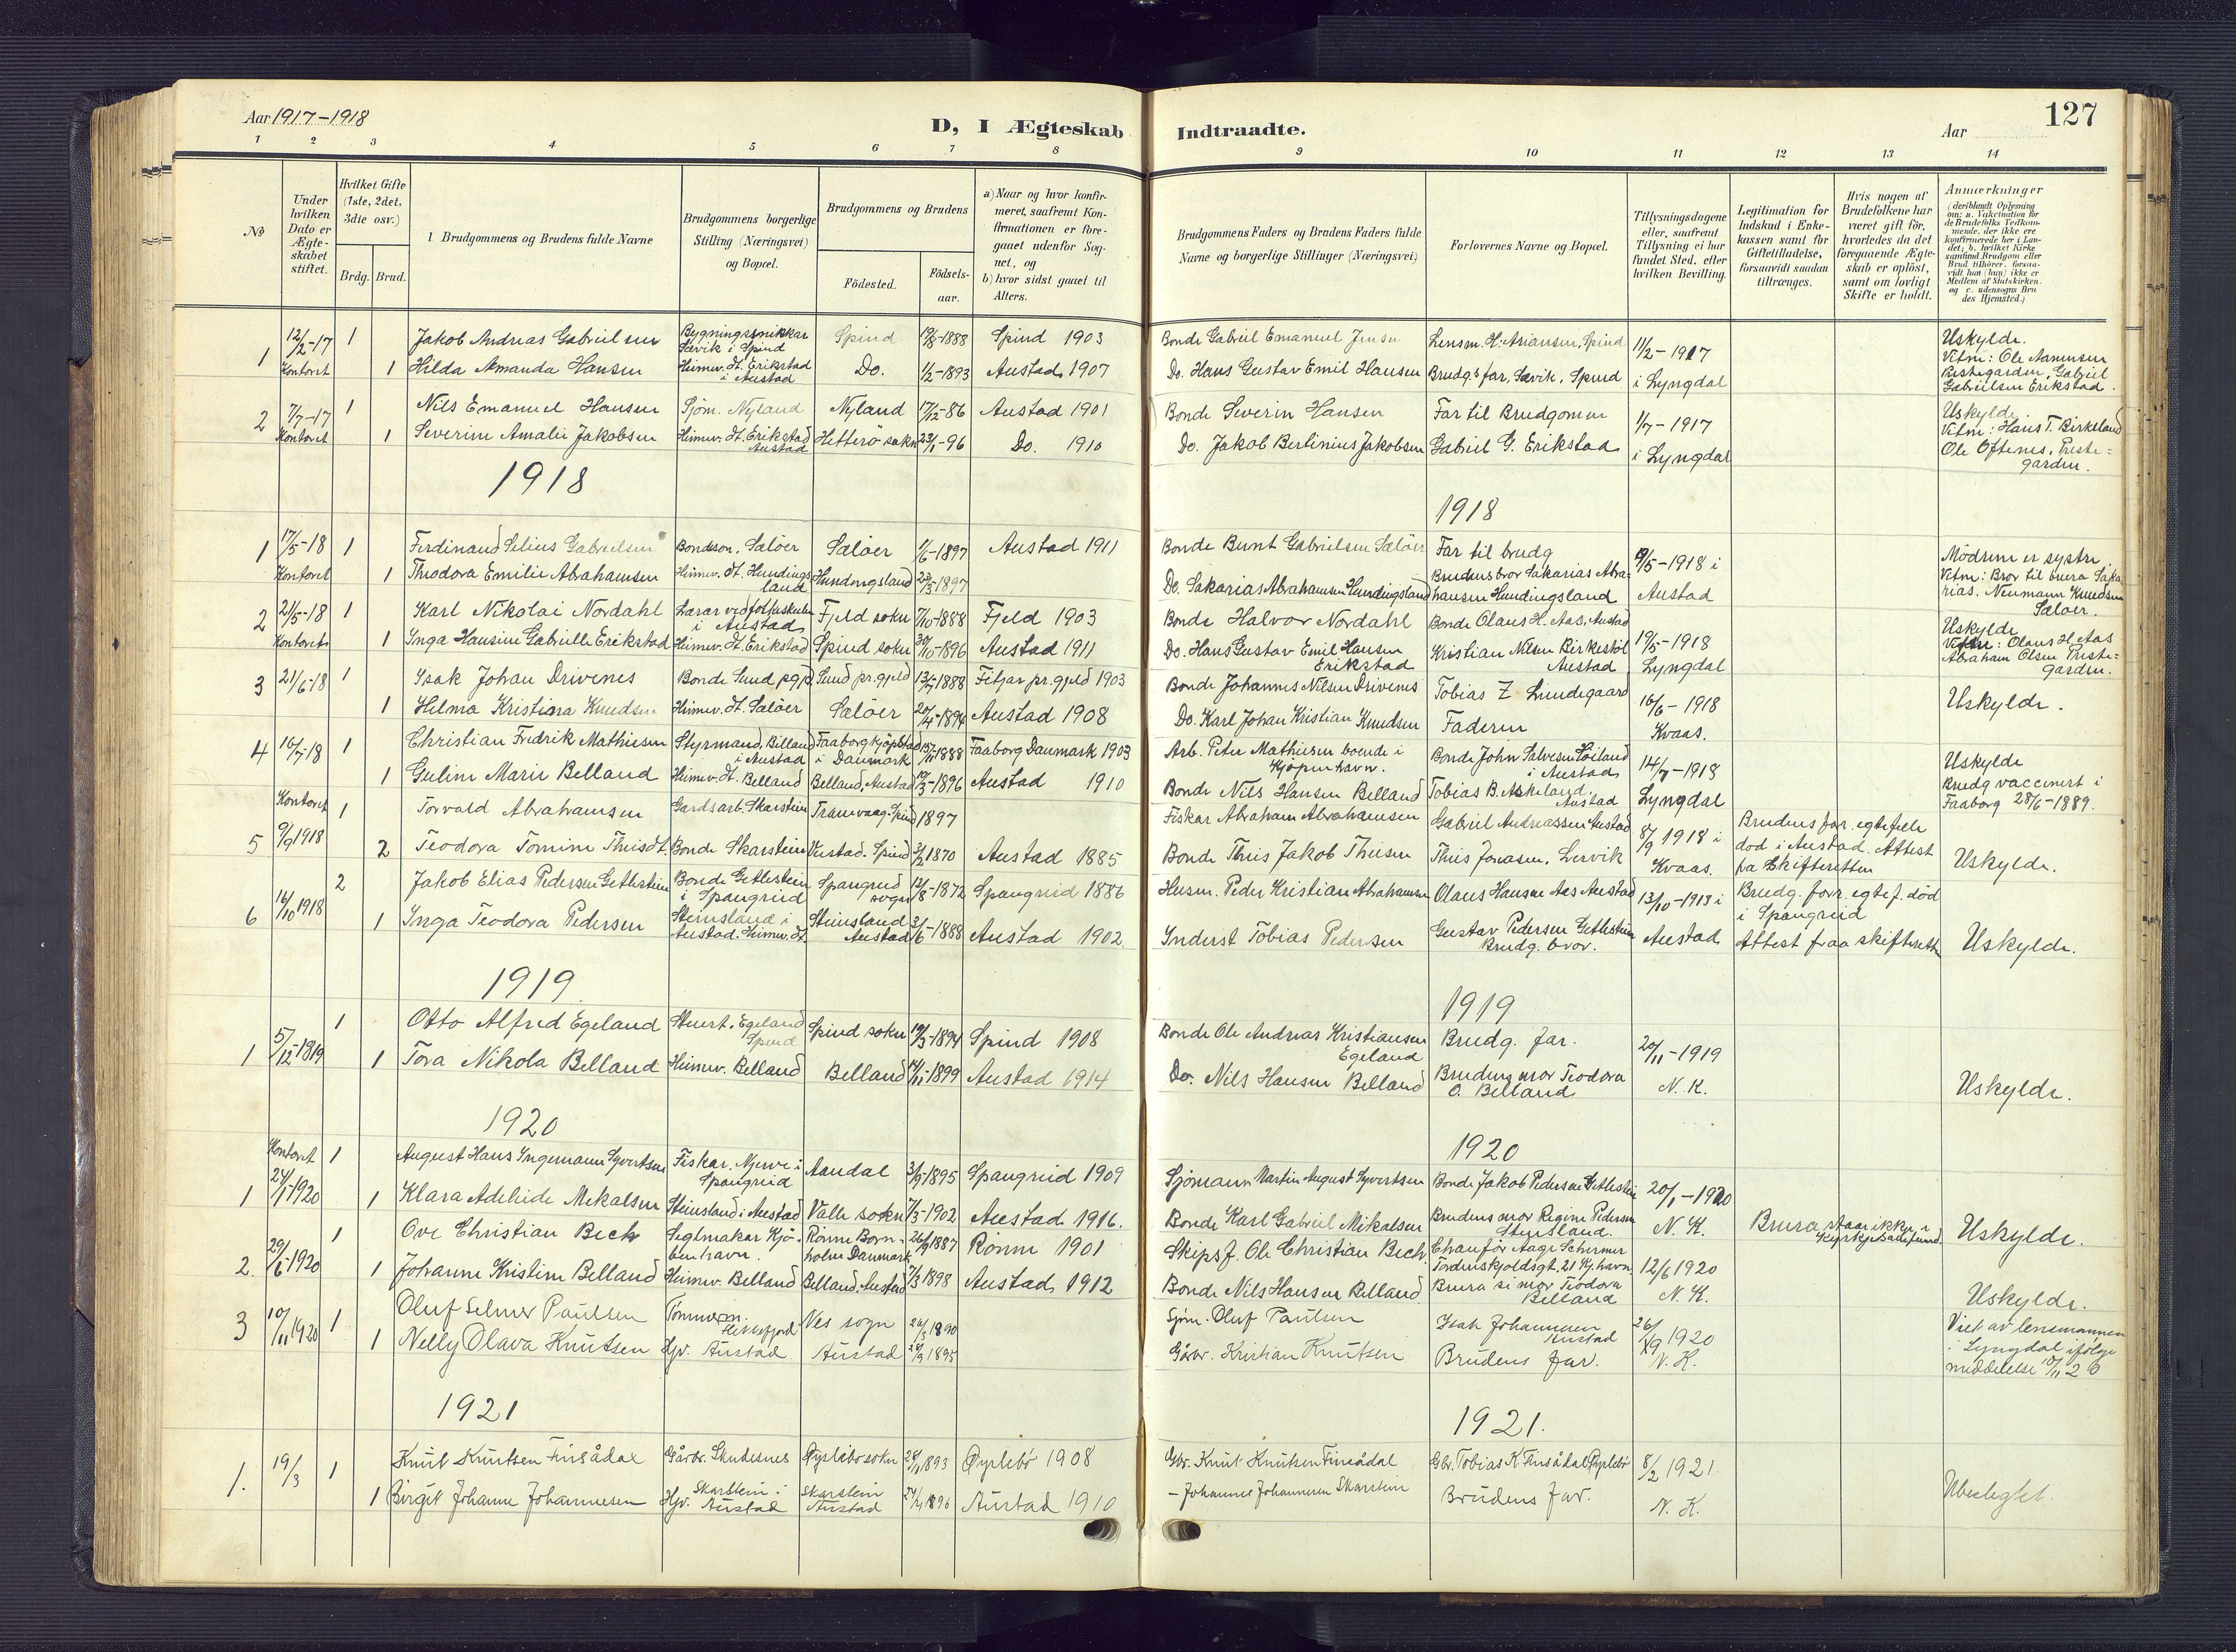 Aar 1917–1918
D, I Ægteskab
Indtraadte.
Aar
127
1 2 3 4 5 6 7 8
9 10 11 12 13 14
No
Under hvilken Dato er Ægte-skabet stiftet.
Hvilket Gifte (1ste, 2det, 3die osv.)
Brdg. Brud.
Brudgommens og Brudens fulde Navne
Brudgommens borgerlige Stilling (Næringsvei) og Bopæl.
Brudgommens og Brudens
Fødested. Fødsels-aar.
a) Naar og hvor konfir-meret, saafremt Kon-firmationen er fore-gaaet udenfor Sog-net, og
b) hvor sidst gaaet til Alters.
Brudgommens Faders og Brudens Faders fulde Navne og borgerlige Stillinger (Næringsvei)
Forlovernes Navne og Bopæl.
Tillysningsdagene eller, saafremt Tillysning ei har fundet Sted, efter hvilken Bevilling.
Legitimation for Indskud i Enke-kassen samt for Giftetilladelse, forsaavidt saadan tiltrænges.
Hvis nogen af Brudefolkene har været gift før, hvorledes da det foregaaende Ægte-skab er opløst, samt om lovligt Skifte er holdt.
Anmærkninger (deriblandt Oplysning om: a. Vakcination for de Brudefolks Vedkom-mende, der ikke ere konfirmerede her i Lan-det; b. hvilket Kirke-samfund Brudgom eller Brud tilhører, forsaa-vidt han (hun) ikke er Medlem af Statskirken, og c. udensogns Bru-des Hjemsted.)
1 12/2-17 1 Jakob Andreas Gabrielsen Bygningssnikkar Sævik i Spind Spind 19/8-1888 Spind 1903 Bonde Gabriel Emanuel Jensen Lensm. H. Ariansen, Spind 11/2-1917 Uskylde.
Kontoret 1 Hilda Amanda Hansen Heimev. dt. Erikstad i Austad Do. 1/2-1893 Austad 1907 Do. Hans Gustav Emil Hansen Brudg.s far, Sævik, Spind i Lyngdal Vitne: Ole Aamunsen Prestegarden, Gabriel Gabrielsen Erikstad.
2 7/7-17 1 Nils Emanuel Hansen Sjøm. Nyland Nyland 17/12-86 Austad 1901 Bonde Severin Hansen Far til Brudgomen 1/7-1917 Uskylde
Kontoret 1 Severine Amalie Jakobsen Heimev. dt. Erikstad Austad Hitterø sokn 23/1-96 Do. 1910 Do. Jakob Bertinius Jakobsen Gabriel G. Erikstad i Lyngdal Vitne: Hans T. Birkeland Ole Oftenes, Preste-garden.
1918
1918
1 17/5-18 1 Ferdinand Selius Gabrielsen Bondeson. Sælöer Sælöer 1/6-1897 Austad 1911 Bonde Bernt Gabrielsen Sælöer Far til brudg 9/5-1918 i Mödrene er systre
Kontoret 1 Theodora Emilie Abrahamsen Heimev. dt. Hundings-land Hundingsland 23/3-1897 Do. Sakarias Abrahamsen Hundingsland Brudens bror Sakarias Abra-hamsen Hundingsland Austad Vitne: Bror til brura Saka-rias. Neumann Knudsen Sælöer.
2 21/5-18 1 Karl Nikolai Nordahl Lærar ved folkeskulen i Austad Fjeld sokn 7/10-1888 Fjeld 1903 Bonde Halvor Nordahl Bonde Olaus H. Aas, Austad 19/5-1918 Uskylde
Kontoret 1 Inga Hansine Gabrielle Erikstad Heimev. dt. Erikstad Spind sokn 30/10-1896 Austad 1911 Do. Hans Gustav Emil Hansen Erikstad Kristian Nilsen Birkestöl Austad Lyngdal Vitne: Olaus H. Aas Abraham Olsen Preste-garden.
3 21/6-18 1 Isak Johan Drivenes Bonde Sund pgjd Sund pr.gjeld 13/7-1888 Fitjar pr.gjeld 1903 Bonde Johannes Nilsen Drivenes Tobias Z Lundegaard 16/6-1918 Uskylde.
1 Helma Kristiana Knudsen Heimev. dt. Sælöer Sælöer 20/4-1894 Austad 1908 Do. Karl Johan Kristian Knudsen Faderen Kvaas.
4 16/7-18 1 Christian Fredrik Mathiesen Styrmand, Belland i Austad Faaborg kjöpstad i Danmark 15/11-1888 Faaborg Danmark 1903 Arb. Peter Mathiesen boende i Kjöpenhavn. Bonde John Salvesen Höiland i Austad 14/7-1918 Uskylde
1 Guline Marie Belland Heimev. dt. Belland Belland, Austad 19/3-1896 Austad 1910 Bonde Nils Hansen Belland Tobias B. Askeland. Austad Lyngdal Brudg vaccinert i Faaborg 28/6-1889.
Kontoret 1 Torvald Abrahamsen Gardsarb. Skarstein Tranevaag-Spind 1897 Fiskar Abraham Abrahamsen Gabriel Andreassen Austad 8/9 1918 i Brudens forr. egtefelle
5 9/9 1918 2 Teodora Tomine Theisdt. Bonde Skarstein Vestad. Spind 3/2 1870 Austad 1885 Bonde Theis Jakob Theisen Theis Jonasen. Lervik Kvaas. död i Austad. Attest fra Skifteretten Uskylde.
6 14/10 1918 2 Jakob Elias Pedersen Getlestein Bonde Getlestein i Spangreid Spangreid sogn 12/8-1872 Spangreid 1886 Husm. Peder Kristian Abrahamsen Olaus Hansen Aas Austad 13/10-1918 i Brudg. forr. egtef. död i Spangreid
1 Inga Teodora Pedersen Steinsland i Austad. Heimev. dt. Steinsland Austad 3/6-1888 Austad 1902. Inderst Tobias Pedersen Gustav Pedersen Getlestein Brudg. bror. Austad Attest fraa skifteretten Uskylde.
1919
1919
1 5/12-1919 1 Otto Alfred Egeland Stuert. Egeland Spind Spind sokn 19/3-1894 Spind 1908 Bonde Ole Andreas Kristiansen Egeland Brudg. far. 20/11-1919
1 Tora Nikola Belland Heimev. Belland Belland 14/11-1899 Austad 1914 Do. Nils Hansen Belland Brudens mor Teodora O. Belland N. K. Uskylde.
1920
1920
Kontoret 1 August Hans Ingemann Syvertsen Fiskar. Njerve i Spangreid Aandal 3/9-1895 Spangreid 1909 Sjömann Martin August Syvertsen Bonde Jakob Pedersen Getlestein 20/1-1920
1 24/1 1920 1 Klara Adelheide Mekalsen Steinsland i Austad Valle sokn 7/3-1902 Austad 1916. Bonde Karl Gabriel Mikalsen Brudens mor Regine Pedersen Steinsland. N. K. Brura staar ikkje i kyrkjesamfund Uskylde.
2. 29/6 1920 1 Ove Christian Bech Seglmakar Kjö-benhavn. Rönne Born-holm Danmark 26/9 1887 Rönne 1901 Skipsf. Ole Christian Bech. Chauför Aage Schirmer Tordenskjoldsgt. 21 Kj.havn. 12/6 1920
1 Johanne Kristine Belland Heimev. Belland Belland, Austad 7/3 1898 Austad 1912 Bonde Nils Hansen Belland Brura si mor Teodora Belland N. K. Uskylde.
3 10/11 1920 1 Oluf Selmer Paulsen Tømmerm. Flekkefjord Nes sogn 26/3 1890 Sjøm. Oluf Paulsen Isak Johannesen Austad 26/9 1920 Viet av lensmannen
1 Nelly Olava Knutsen Hjv. Austad Austad 28/9 1895 Gårbr. Kristian Knutsen Brudens far. N. K. i Lyngdal ifølge meddelelse 10/11 20
1921
1921.
1. 19/3 1 Knut Knutsen Finsådal Gårbr. Skudesnes Øyslebø sokn 28/11 1893 Øyslebø 1908 Gbr. Knut Knutsen Finsådal Gbr. Tobias K. Finsådal Øyslebø 8/2 1921.
1 Birgit Johanne Johannesen Hjv. Skarstein i Austad Skarstein Austad 24/4 1896 Austad 1910 – Johannes Johannesen Skarstein Brudens far. N. K. Ubeslegtet.